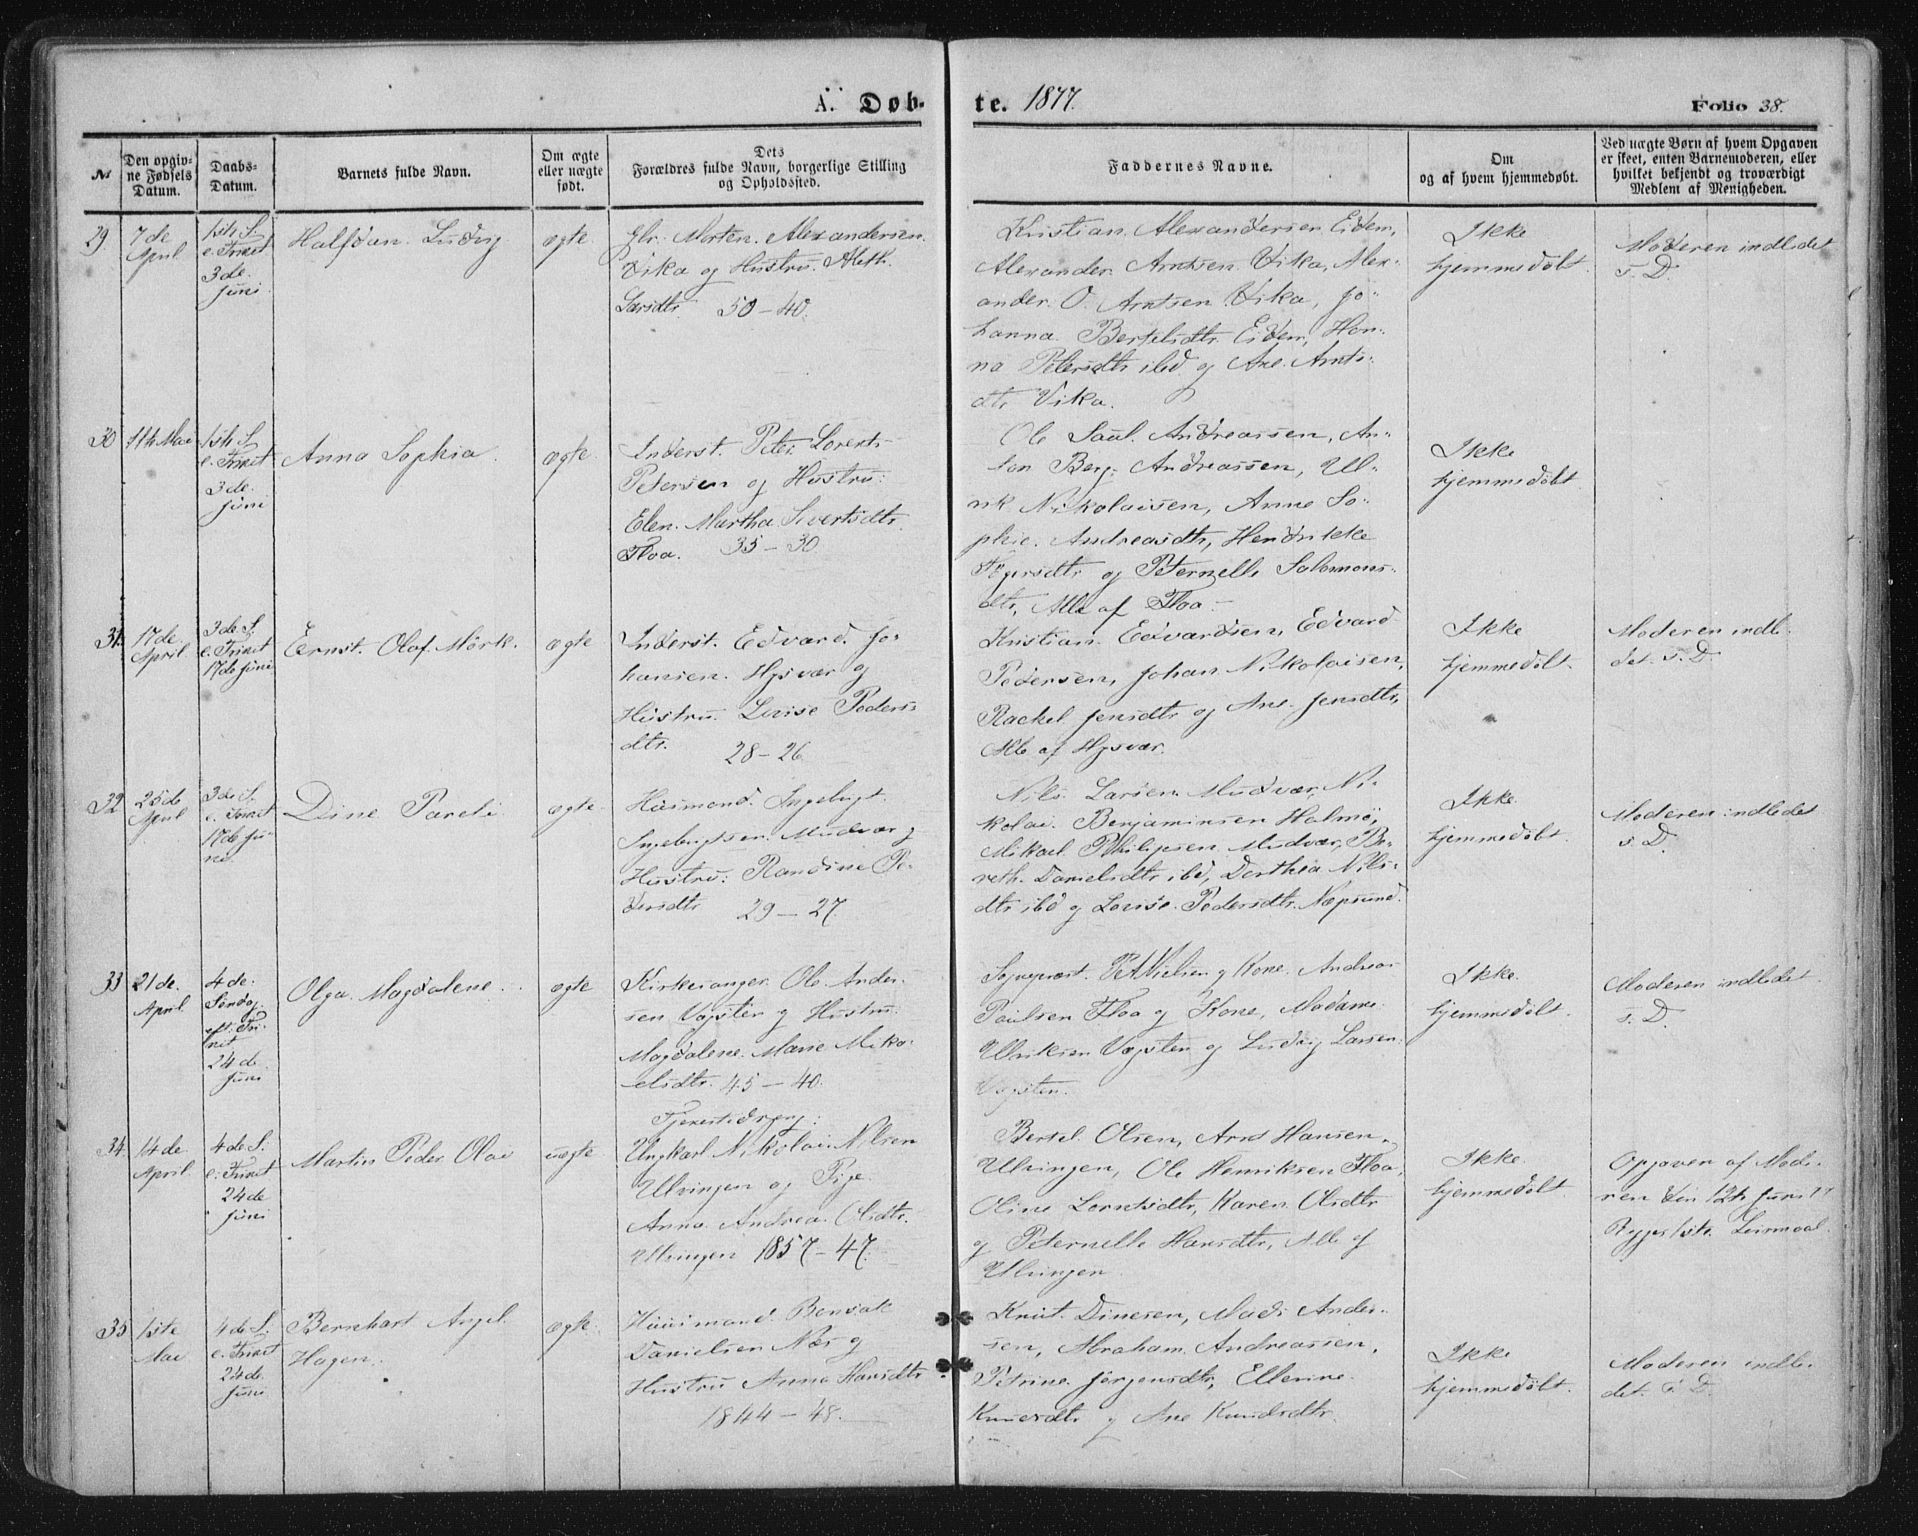 A. Døb-
te. 1877.
Folio 38.
No
Den opgiv-
ne Fødsels
Datum.
Daabs-
Datum.
Barnets fulde Navn.
Om ægte
eller uægte
født.
Dets
Forældres fulde Navn, borgerlige Stilling
og Opholdssted.
Faddernes Navne.
Om
og af hvem hjemmedøbt.
Ved uægte Børn af hvem Opgaven
er skeet, enten Barnemoderen, eller
hvilket bekjendt og troværdigt
Medlem af Menigheden.
29.
7de
April
1ste S.
e. Trinet
3de
Juni
Halfdan Ludvig
ægte
Morten Alexandersen
Vika og Hustru Aleth
Larsdtr. 50-40.
Kristian Alexandersen Eidem,
Alexander Arntsen Vika, Alex-
ander O. Arntsen Vika, Jo-
hanna Bertelsdtr Eidem, Han-
na Petersdtr ibd og Ane Arnts-
dtr Vika.
Ikke
hjemmedøbt.
Moderen indledet
s. D.
30
11te Mai
1ste S.
e. Trinet
3de
Juni
Anna Sophia
ægte
Inderst. Peter Lorents
Petersen og Hustru:
Elen Martha Sivertsdtr.
Floa. 35-30
Ole Saul Andreassen, An-
ton Berg Andreassen, Ul-
rik Nikolaisen, Anne So-
phie Andreasdtr, Hendrikke
og Peternelle Salomons-
dtr, Alle af Floa.
Ikke
hjemmedøbt
31.
17de
April
3de S.
e. Trinet
17de Juni
Ernst Olaf Mørk.
ægte
Inderst. Edvard Jo-
hansen Hysvær og
Hustru Lovise Peders-
dtr. 28-26
Kristian Edvardsen, Edvard
Pedersen, Johan Nikolaisen,
Rackel Jensdtr og Ane Jensdtr,
Alle af Hysvær.
Ikke
hjemmedøbt.
Moderen indle-
det s. D.
32
25de
April
3de S.
e. Trinet
17de Ju-
ni.
Dine Pareli
ægte
Huusmand Ingebrigt
Ingebrigtsen Mudvær og
Hustru: Randine Pe-
dersdtr 29-27
Nils Larsen Mudvær, Ni-
kolai Benjaminsen Halmø,
Mikael Philipsen Mudvær, Be-
reth Danielsdtr ibd, Dorthea Nils-
dtr ibd og Lovise Pedersdtr. Næpsund.
Ikke
hjemmedøbt
Moderen indledet
s. D.
33
21de
April
4de
Søndag
eft. Tri-
nit
24de
Juni
Olga Magdalene
ægte
Kirkesanger Ole Ander-
sen Vægsten og Hustru
Magdalene Marie Mika-
elsdtr. 45-40.
Sognepræst Nielsen og Kone, Andreas
Paulsen Floa og Kone, Madame
Ulriksen Vægsten og Ludvig Larsen
Vægsten.
Ikke
hjemmedøbt.
Moderen indledet
s. D.
34.
14de
April
4de S.
e. Trinet
24de
Juni
Martin Peder Olai
uægte
Tjenestedreng:
Ungkarl Nikolai Nilsen
Ulvingen og Pige
Anna Andrea Olsdtr.
Ulvingen 1857-47.
Bertel Olsen, Arnt Hansen
Ulvingen, Ole Henriksen Floa,
Oline Lorntsdtr, Karen Olsdtr
og Peternelle Hansdtr, Alle af
Ulvingen
Ikke
hjemmedøbt
Opgaven af Mode-
ren den 12te Juni 77
Leirmoal.
35
1ste
Mai
4de S.
e. Trinet
24de
Juni
Bernhart Angel
Hagen
ægte
Huusmand Bonsak
Danielsen Næs og
Hustru Anna Hansdtr
1844-48.
Knut Dinesen, Mads Ander-
sen, Abraham Andreassen,
Petrine Jørgensdtr, Ellerine
og Ane Knudsdtr
Ikke
hjemmedøbt.
Moderen indle-
det s. D.